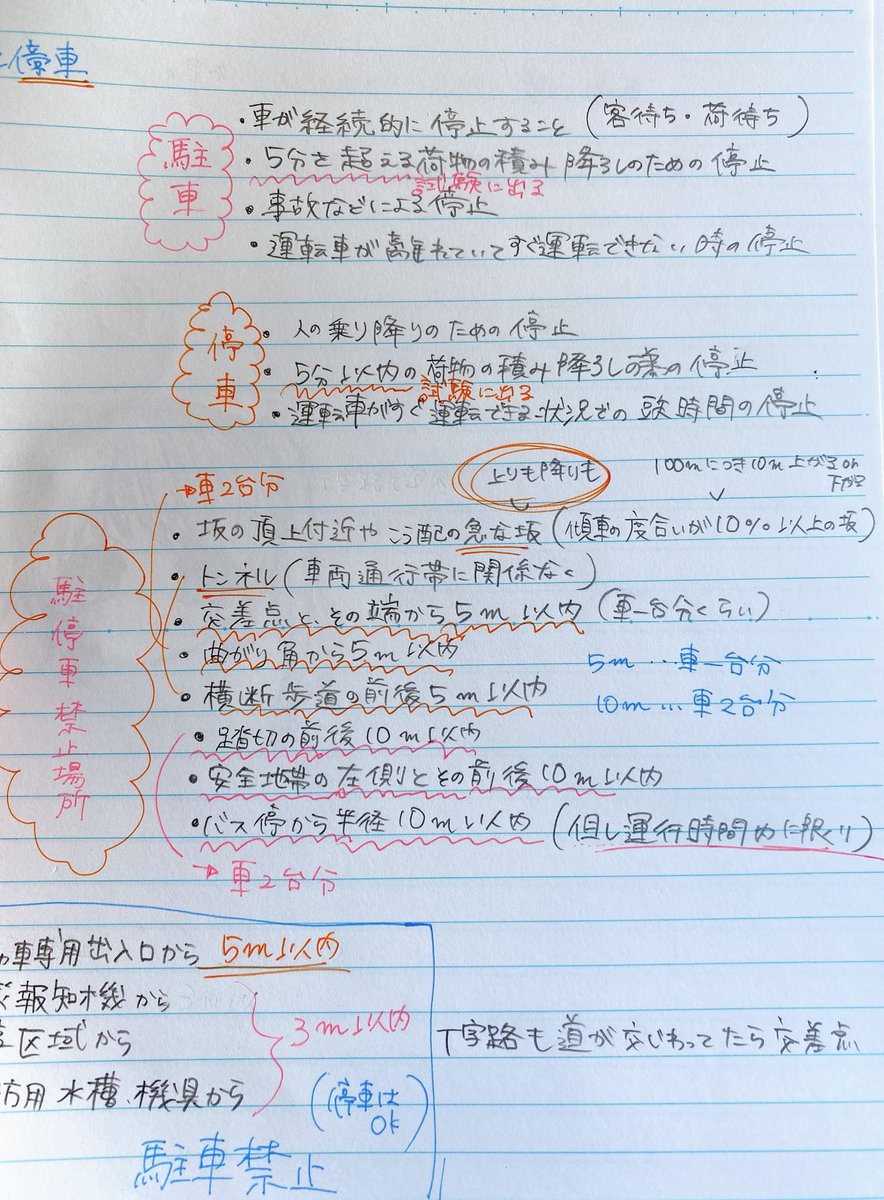 停車
駐車
・車が経続的に停止すること(客待ち・荷待ち)
・5分を超える荷物の積み降ろしのための停止
試験に出る
・事故などによる停止
・運転車が離れていてすぐ運転できない時の停止
停車
・人の乗り降りのための停止
・5分以内の荷物の積み降ろしの為の停止
試験に出る
・運転車がすぐ運転できる状況での短時間の停止
→車2台分
上りも降りも
100mにつき10m上がるor
下がる
駐停車禁止場所
・坂の頂上付近やこう配の急な坂(傾車の度合いが10%以上の坂)
・トンネル(車両通行帯に関係なく)
・交差点と、その端から5m以内(車一台分くらい)
・曲がり角から5m以内
5m…車一台分
・横断歩道の前後5m以内
10m…車2台分
・踏切の前後10m以内
・安全地帯の左側とその前後10m以内
・バス停から半径10m以内(但し運行時間内に限り)
→車2台分
車専用出入口から 5m以内
報知機から
区域から
3m以内
T字路も道が交じわってたら交差点
用水槽、機具から
(停車は
OK)
駐車禁止